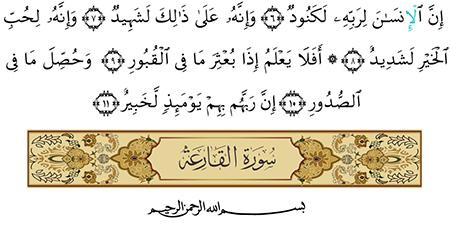 إِنَّ الْإِنسَٰنَ لِرَبِّهِۦ لَكَنُودٌ ﴿٦﴾ وَإِنَّهُۥ عَلَىٰ ذَٰلِكَ لَشَهِيدٌ ﴿٧﴾ وَإِنَّهُۥ لِحُبِّ
الْخَيْرِ لَشَدِيدٌ ﴿٨﴾ ۞ أَفَلَا يَعْلَمُ إِذَا بُعْثِرَ مَا فِى الْقُبُورِ ﴿٩﴾ وَحُصِّلَ مَا فِى
الصُّدُورِ ﴿١٠﴾ إِنَّ رَبَّهُم بِهِمْ يَوْمَئِذٍ لَّخَبِيرٌ ﴿١١﴾
سُورَةُ الْقَارِعَةِ
بسم الله الرحمن الرحيم